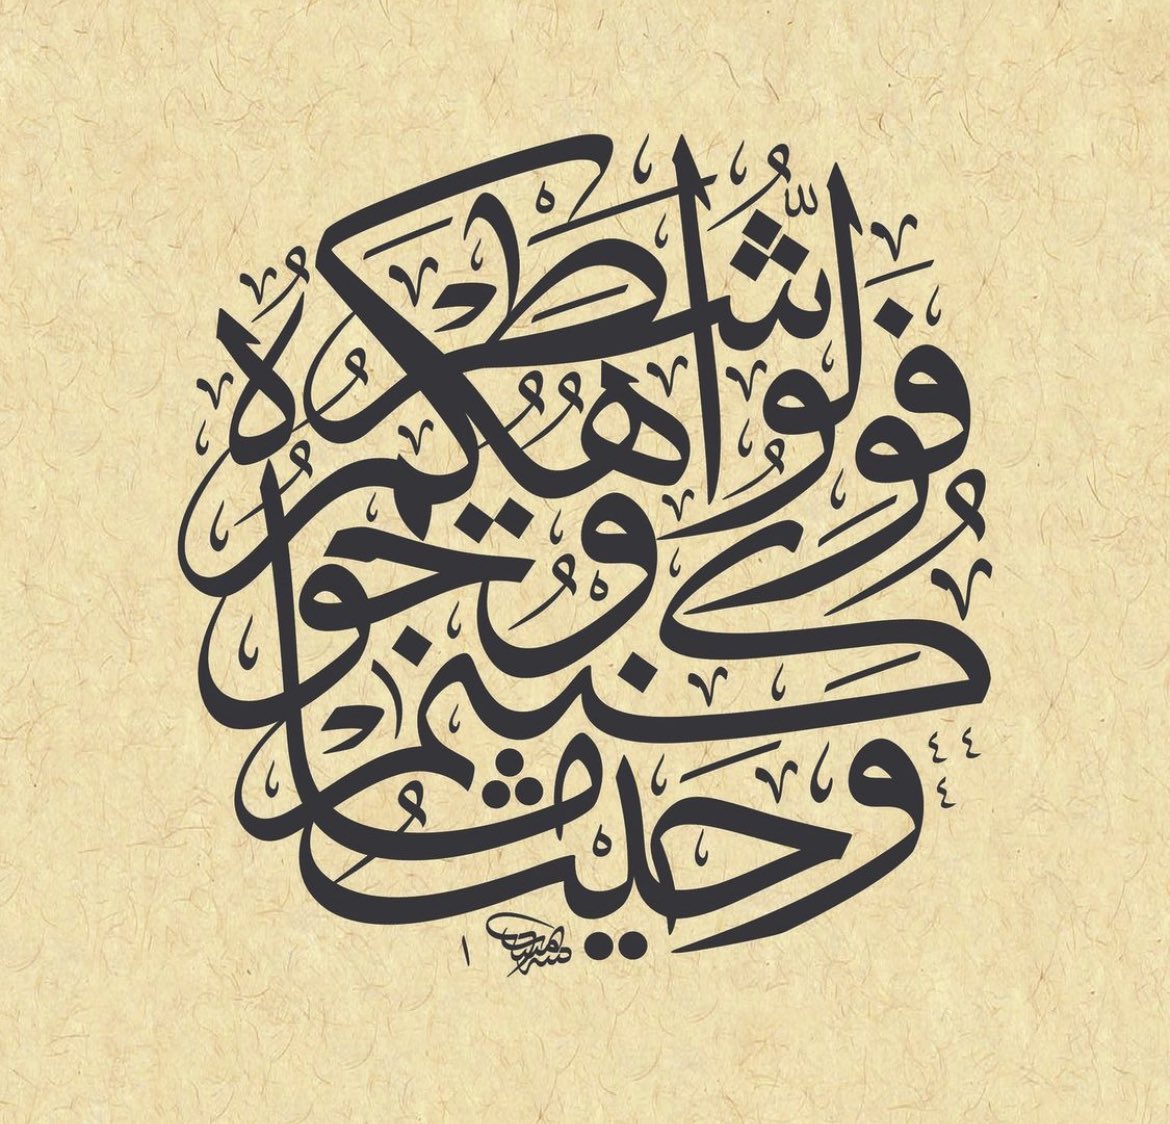 وَحَيْثُ مَا كُنْتُمْ فَوَلُّوا وُجُوهَكُمْ شَطْرَهُ